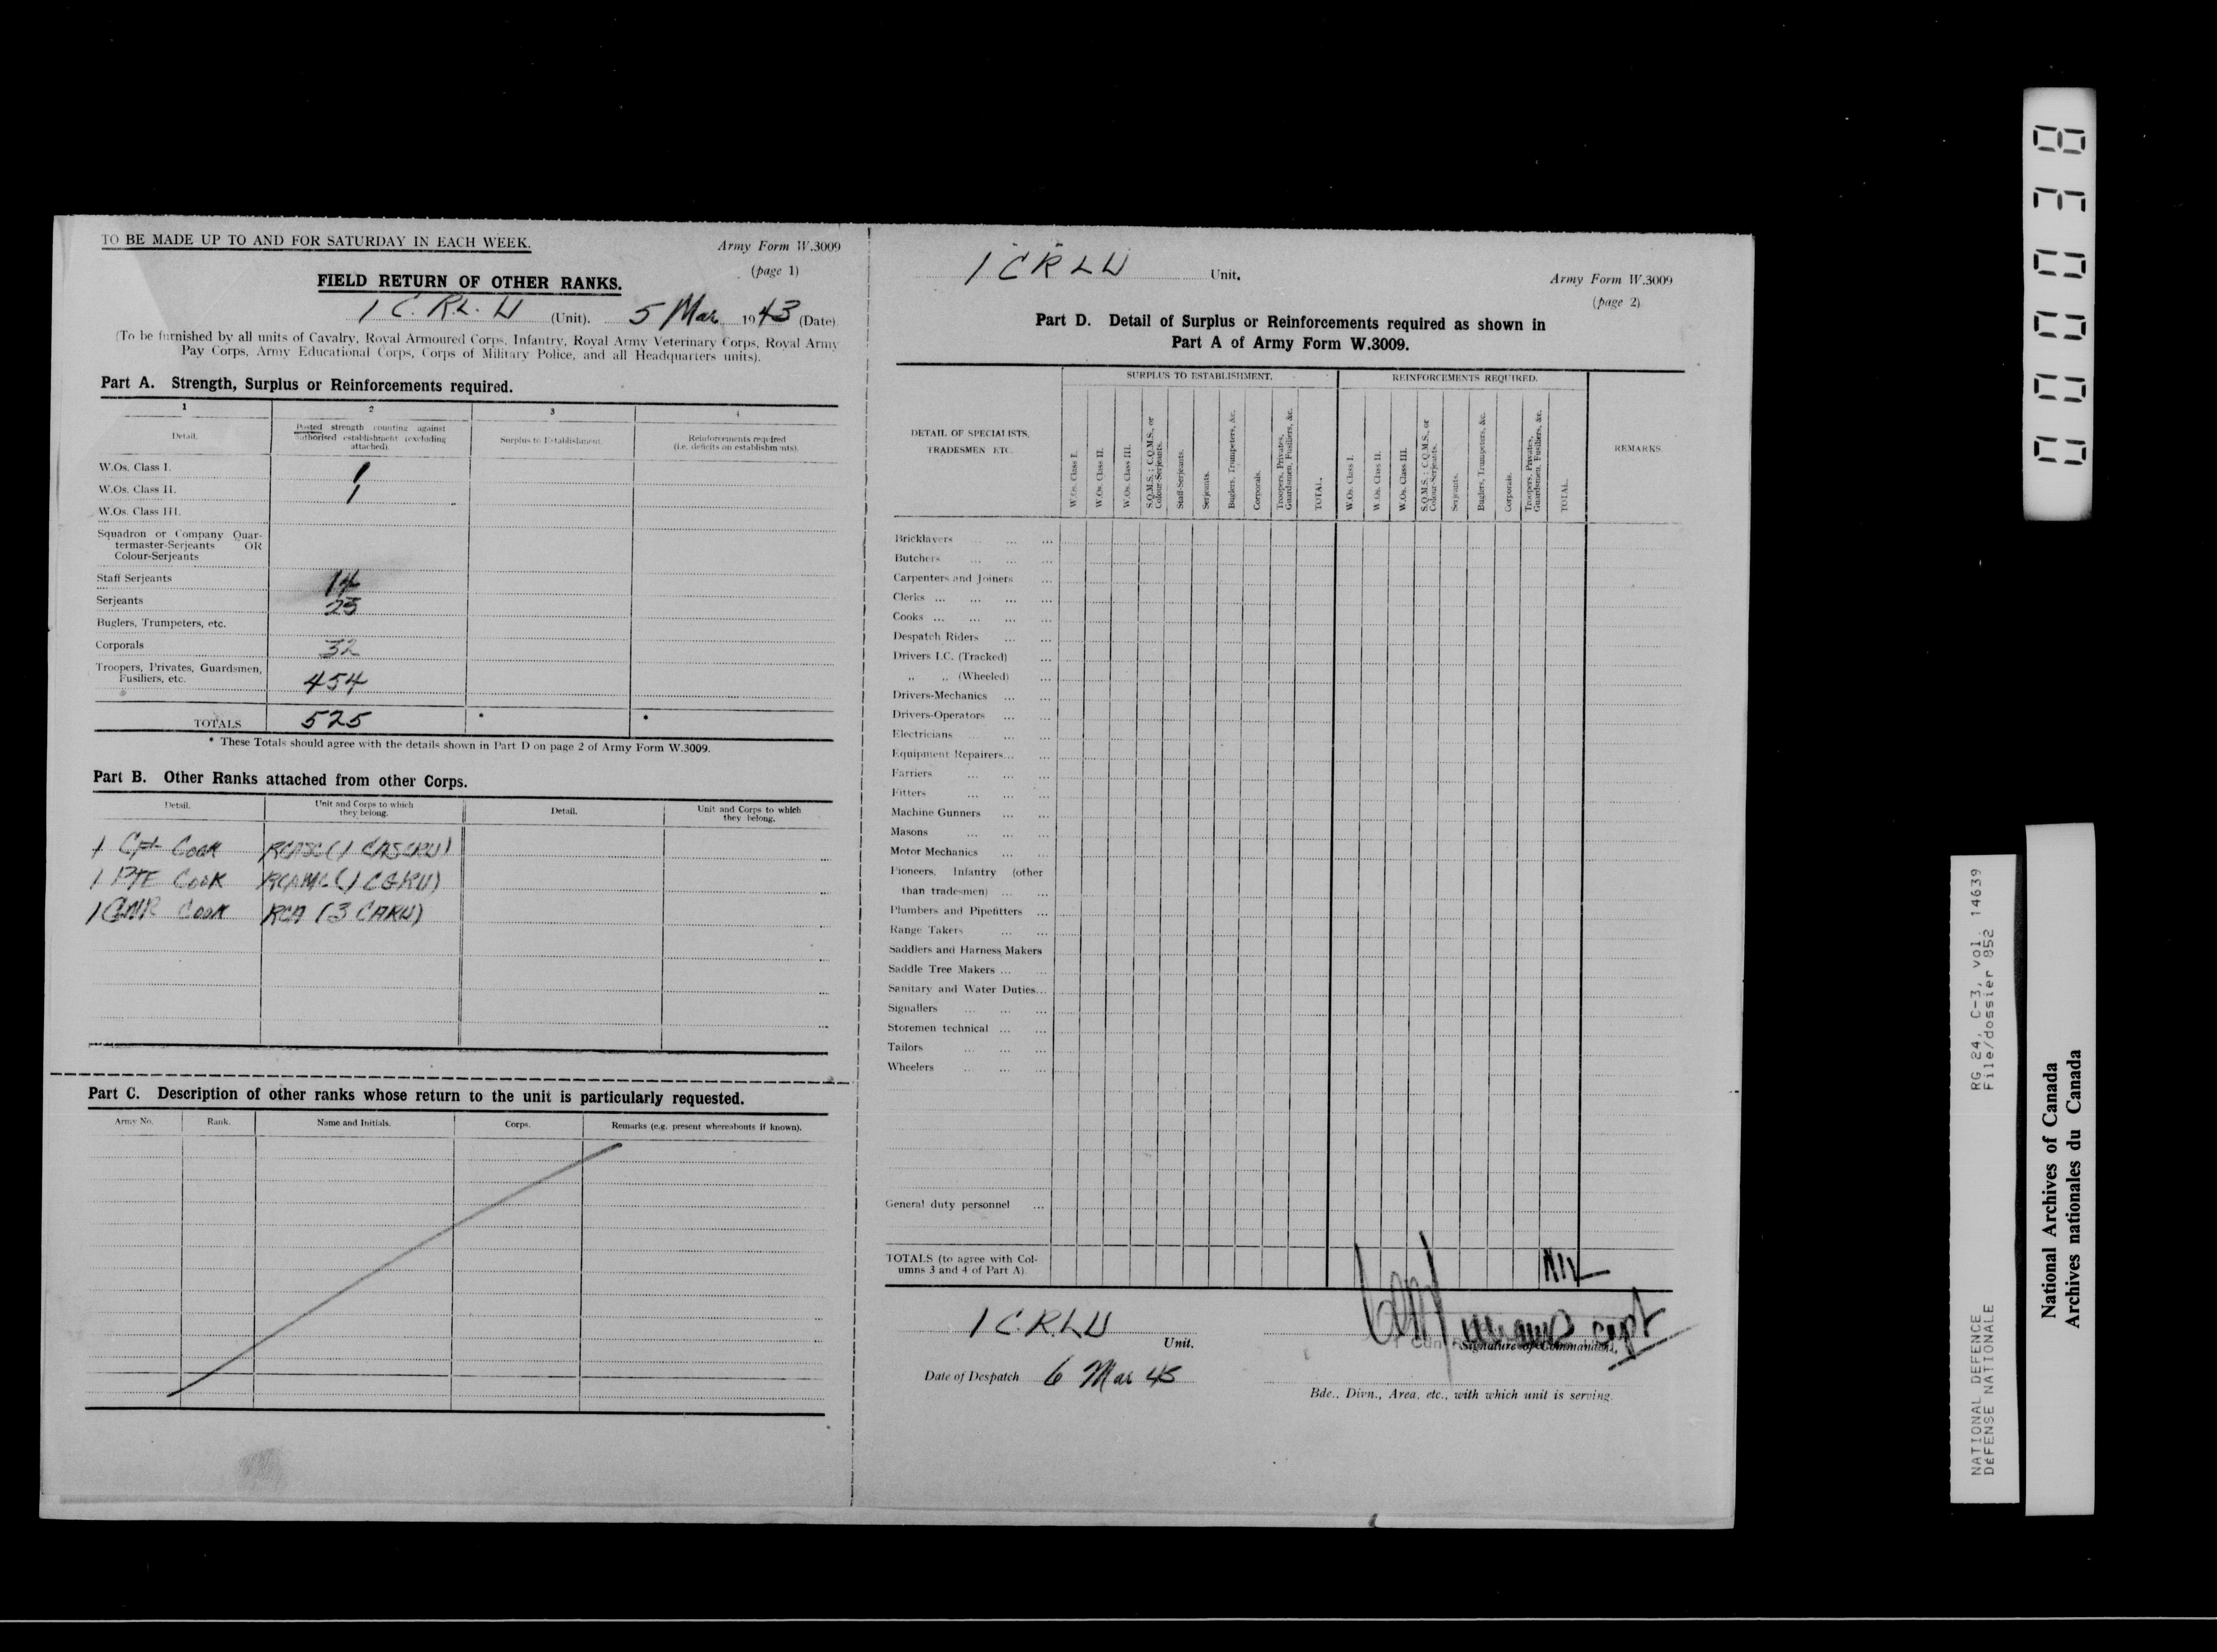 TO BE MADE UP TO AND FOR SATURDAY IN EACH WEEK.
Army Form W.3009
(page 1)
FIELD RETURN OF OTHER RANKS.
1 C.R.L.U (Unit). 5 Mar 1943 (Date)
(To be furnished by all units of Cavalry, Royal Armoured Corps, Infantry, Royal Army Veterinary Corps, Royal Army
Pay Corps, Army Educational Corps, Corps of Military Police, and all Headquarters units).
Part A. Strength, Surplus or Reinforcements required.
1 2 3 4
Detail. Posted strength counting against authorised establishment (excluding attached). Surplus to Establishment. Reinforcements required (i.e. deficits on establishments).
W.Os. Class I. 1
W.Os. Class II. 1
W.Os. Class III.
Squadron or Company Quar-
termaster-Serjeants OR
Colour-Serjeants
Staff Serjeants 14
Serjeants 23
Buglers, Trumpeters, etc.
Corporals 32
Troopers, Privates, Guardsmen,
Fusiliers, etc. 454
TOTALS 525 * *
* These Totals should agree with the details shown in Part D on page 2 of Army Form W.3009.
Part B. Other Ranks attached from other Corps.
Detail. Unit and Corps to which they belong. Detail. Unit and Corps to which they belong.
1 Cpl Cook RCASC (1 CASCRU)
1 PTE Cook RCAMC (1 CGRU)
1 GNR Cook RCA (3 CARU)
Part C. Description of other ranks whose return to the unit is particularly requested.
Army No. Rank. Name and Initials. Corps. Remarks (e.g. present whereabouts if known).
1 CRLU Unit.
Army Form W.3009
(page 2)
Part D. Detail of Surplus or Reinforcements required as shown in
Part A of Army Form W.3009.
DETAIL OF SPECIALISTS, TRADESMEN ETC.
SURPLUS TO ESTABLISHMENT.
W.Os. Class I.
W.Os. Class II.
W.Os. Class III.
S.Q.M.S.; C.Q.M.S., or Colour-Serjeants.
Staff-Serjeants.
Serjeants.
Buglers, Trumpeters, &c.
Corporals.
Troopers, Privates, Guardsmen, Fusiliers, &c.
TOTAL.
REINFORCEMENTS REQUIRED.
W.Os. Class I.
W.Os. Class II.
W.Os. Class III.
S.Q.M.S.; C.Q.M.S., or Colour-Serjeants.
Serjeants.
Buglers, Trumpeters, &c.
Corporals.
Troopers, Privates, Guardsmen, Fusiliers, &c.
TOTAL.
REMARKS.
Bricklayers ... ...
Butchers ... ... ...
Carpenters and Joiners ...
Clerks ... ... ... ...
Cooks ... ... ... ...
Despatch Riders ... ...
Drivers I.C. (Tracked) ...
„ „ (Wheeled) ...
Drivers-Mechanics ... ...
Drivers-Operators ... ...
Electricians ... ...
Equipment Repairers... ...
Farriers ... ... ...
Fitters ... ... ...
Machine Gunners ... ...
Masons ... ... ...
Motor Mechanics ... ...
Pioneers, Infantry (other
than tradesmen) ... ...
Plumbers and Pipefitters ...
Range Takers ... ...
Saddlers and Harness Makers
Saddle Tree Makers ... ...
Sanitary and Water Duties...
Signallers ... ... ...
Storemen technical ... ...
Tailors ... ... ...
Wheelers ... ... ...
General duty personnel ...
TOTALS (to agree with Col-
umns 3 and 4 of Part A). NIL
1 C.R.L.U Unit.
capt
Signature of Commander.
Date of Despatch 6 Mar 43
Bde., Divn., Area, etc., with which unit is serving.
000038
RG 24, C-3, vol. 14639
File/dossier 852
NATIONAL DEFENCE
DÉFENSE NATIONALE
National Archives of Canada
Archives nationales du Canada